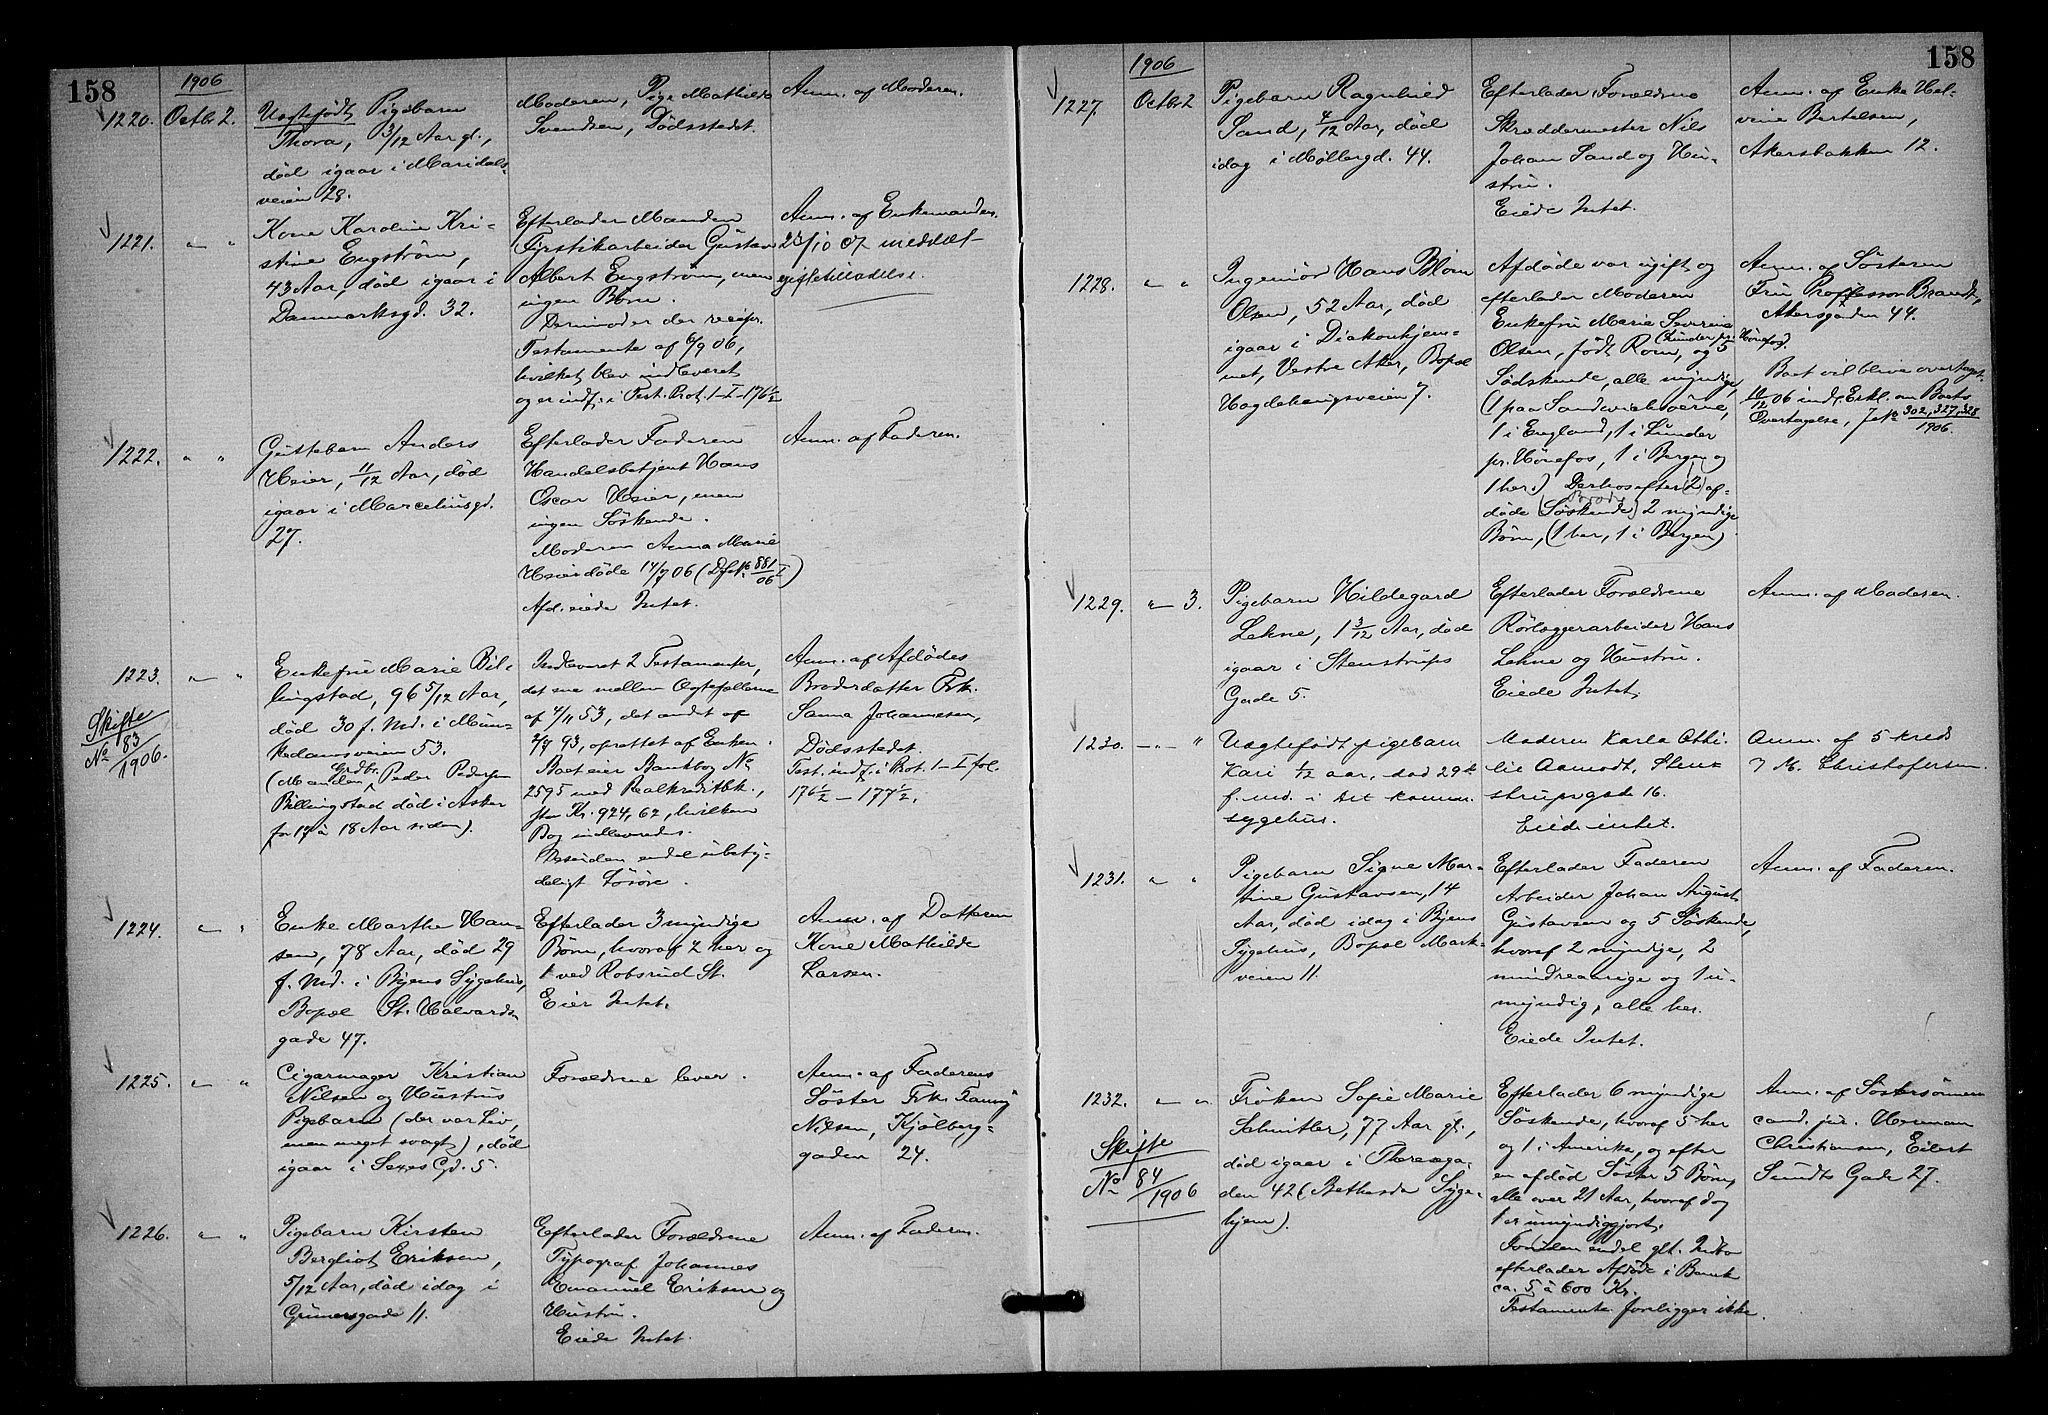 158
1906
1220. Octbr 2.
Uægtefødt Pigebarn
Thora, 3/12 Aar gl.,
død igaar i Maridals-
veien 28.
Moderen, Pige Mathilde
Svendsen, Dødsstedet.
Anm. af Moderen.
1221. " "
Kone Karoline Kri-
stine Engström,
43 Aar, død igaar i
Danmarksgd. 32.
Efterlader Manden
Fyrstikarbeider Gustav
Albert Engström, men
ingen Børn.
Derimod er der recipr.
Testamente af 6/9 06,
hvilket blev indleveret
og er indf. i Test. Prot. 1-I-176 1/2
Anm. af Enkemanden.
23/10 07 meddelt
giftetilladelse.
1222. " "
Guttebarn Anders
Heier, 11/12 Aar, død
igaar i Marceliusgd.
27.
Efterlader Faderen
Handelsbetjent Hans
Oscar Heier, men
ingen Søskende.
Moderen Anna Marie
Heier døde 14/7 06 (Dfs № 881/06 I)
Afd. eiede Intet.
Anm. af Faderen.
1223. " "
Skifte
№ 83/1906.
Enkefru Marie Bil-
lingstad, 96 5/12 Aar,
død 30 f. Md. i Mun-
kedamsveien 53.
(Manden Grdbr. Peder Pedersen
Billingstad død i Asker
for 17 à 18 Aar siden).
Indleveret 2 Testamenter,
det ene mellem Ægtefællerne
af 4/11 53, det andet af
2/7 93, oprettet af Enken.
Boet eier Bankbog №
2595 med Realkreditbk.,
stor Kr. 924,62, hvilken
Bog indleveredes.
Desuden endel ubety-
deligt Løsøre.
Anm. af Afdødes
Broderdatter Frk.
Sanna Johannesen,
Dødsstedet.
Test. indf. i Prot. 1-I fol.
176 1/2 - 177 1/2.
1224. " "
Enke Marthe Han-
sen, 78 Aar, død 29
f. Md. i Byens Sygehus,
Bopæl St. Halvards
gade 47.
Efterlader 3 myndige
Børn, hvoraf 2 her og
1 ved Robsrud St.
Eier Intet.
Anm. af Datteren
Kone Mathilde
Larsen.
1225. " "
Cigarmager Kristian
Nilsen og Hustrus
Pigebarn (der var Liv,
men meget svagt), død
igaar i Sexes Gd. 5.
Forældrene lever.
Anm. af Faderens
Søster Frk. Fanny
Nilsen, Kjølberg-
gaden 24.
1226. " "
Pigebarn Kirsten
Bergliot Eriksen,
5/12 Aar, død idag i
Grünersgade 11.
Efterlader Forældrene
Typograf Johannes
Emanuel Eriksen og
Hustru.
Eiede Intet.
Anm. af Faderen.
158
1906
1227. Octbr 2
Pigebarn Ragnhild
Sand, 4/12 Aar, død
idag i Møllergd. 44.
Efterlader Forældrene
Skræddermester Nils
Johan Sand og Hu-
stru.
Eiede Intet.
Anm. af Enke Hel-
vine Bertelsen,
Akersbakken 12.
1228. " "
Ingeniør Hans Blom
Olsen, 52 Aar, død
igaar i Diakonhjem-
met, Vestre Aker, Bopæl
Hægdehaugsveien 7.
Afdøde var ugift og
efterlader Moderen
Enkefru Marie Severine
Olsen, født Rom, (Lunder pr. Hönefos). og 5
Sødskende, alle myndige,
(1 paa Sandwichöerne,
1 i England, 1 i Lunder
pr. Hönefos, 1 i Bergen og
1 her.) Derhos efter (2) af-
døde (Søskende) Brødr. 2 myndige
Børn, (1 her, 1 i Bergen).
Anm. af Søsteren
Fru Proffessor Brandt,
Akersgaden 44.
Boet vil blive overtaget.
11/12 06 indk. Erkl. om Boets
Overtagelse, J.№ 302, 327, 328/1906.
1229. " 3.
Pigebarn Hildegard
Lehne, 1 3/12 Aar, død
igaar i Stenstrups
Gade 5.
Efterlader Forældrene
Rörlæggerarbeider Hans
Lehne og Hustru.
Eiede Intet.
Anm. af Moderen.
1230. - " - "
Uægtefødt pigebarn
Kari 1/12 aar, död 29de
f. md. i det komm.
sygehus.
Moderen Karla Othi-
lie Aamodt, Sten-
strupsgade 16.
Eiede intet.
Anm. af 5 kreds
v M. Christofersen.
1231. " "
Pigebarn Signe Mar-
tine Gustavsen, 14
Aar, død idag i Byens
Sygehus, Bopæl Mark-
veien 11.
Efterlader Faderen
Arbeider Johan August
Gustavsen og 5 Søskende,
hvoraf 2 myndige, 2
mindreaarige og 1 u-
myndig, alle her.
Eiede Intet.
Anm. af Faderen.
1232. " "
Skifte
№ 84/1906
Frøken Sofie Marie
Schnitler, 77 Aar gl.,
død igaar i Theresega-
den 42 (Bethesda Syge-
hjem).
Efterlader 6 myndige
Søskende, hvoraf 5 her
og 1 i Amerika, og efter
en afdød Søster 5 Børn,
alle over 21 Aar, hvoraf dog
1 er umyndiggjort.
Foruden endel glt. Indbo
efterlader Afdøde i Bank
ca. 5 à 600 Kr.
Testamente foreligger ikke.
Anm. af Søstersønnen
cand. jur. Herman
Christiansen, Eilert
Sundts Gade 27.